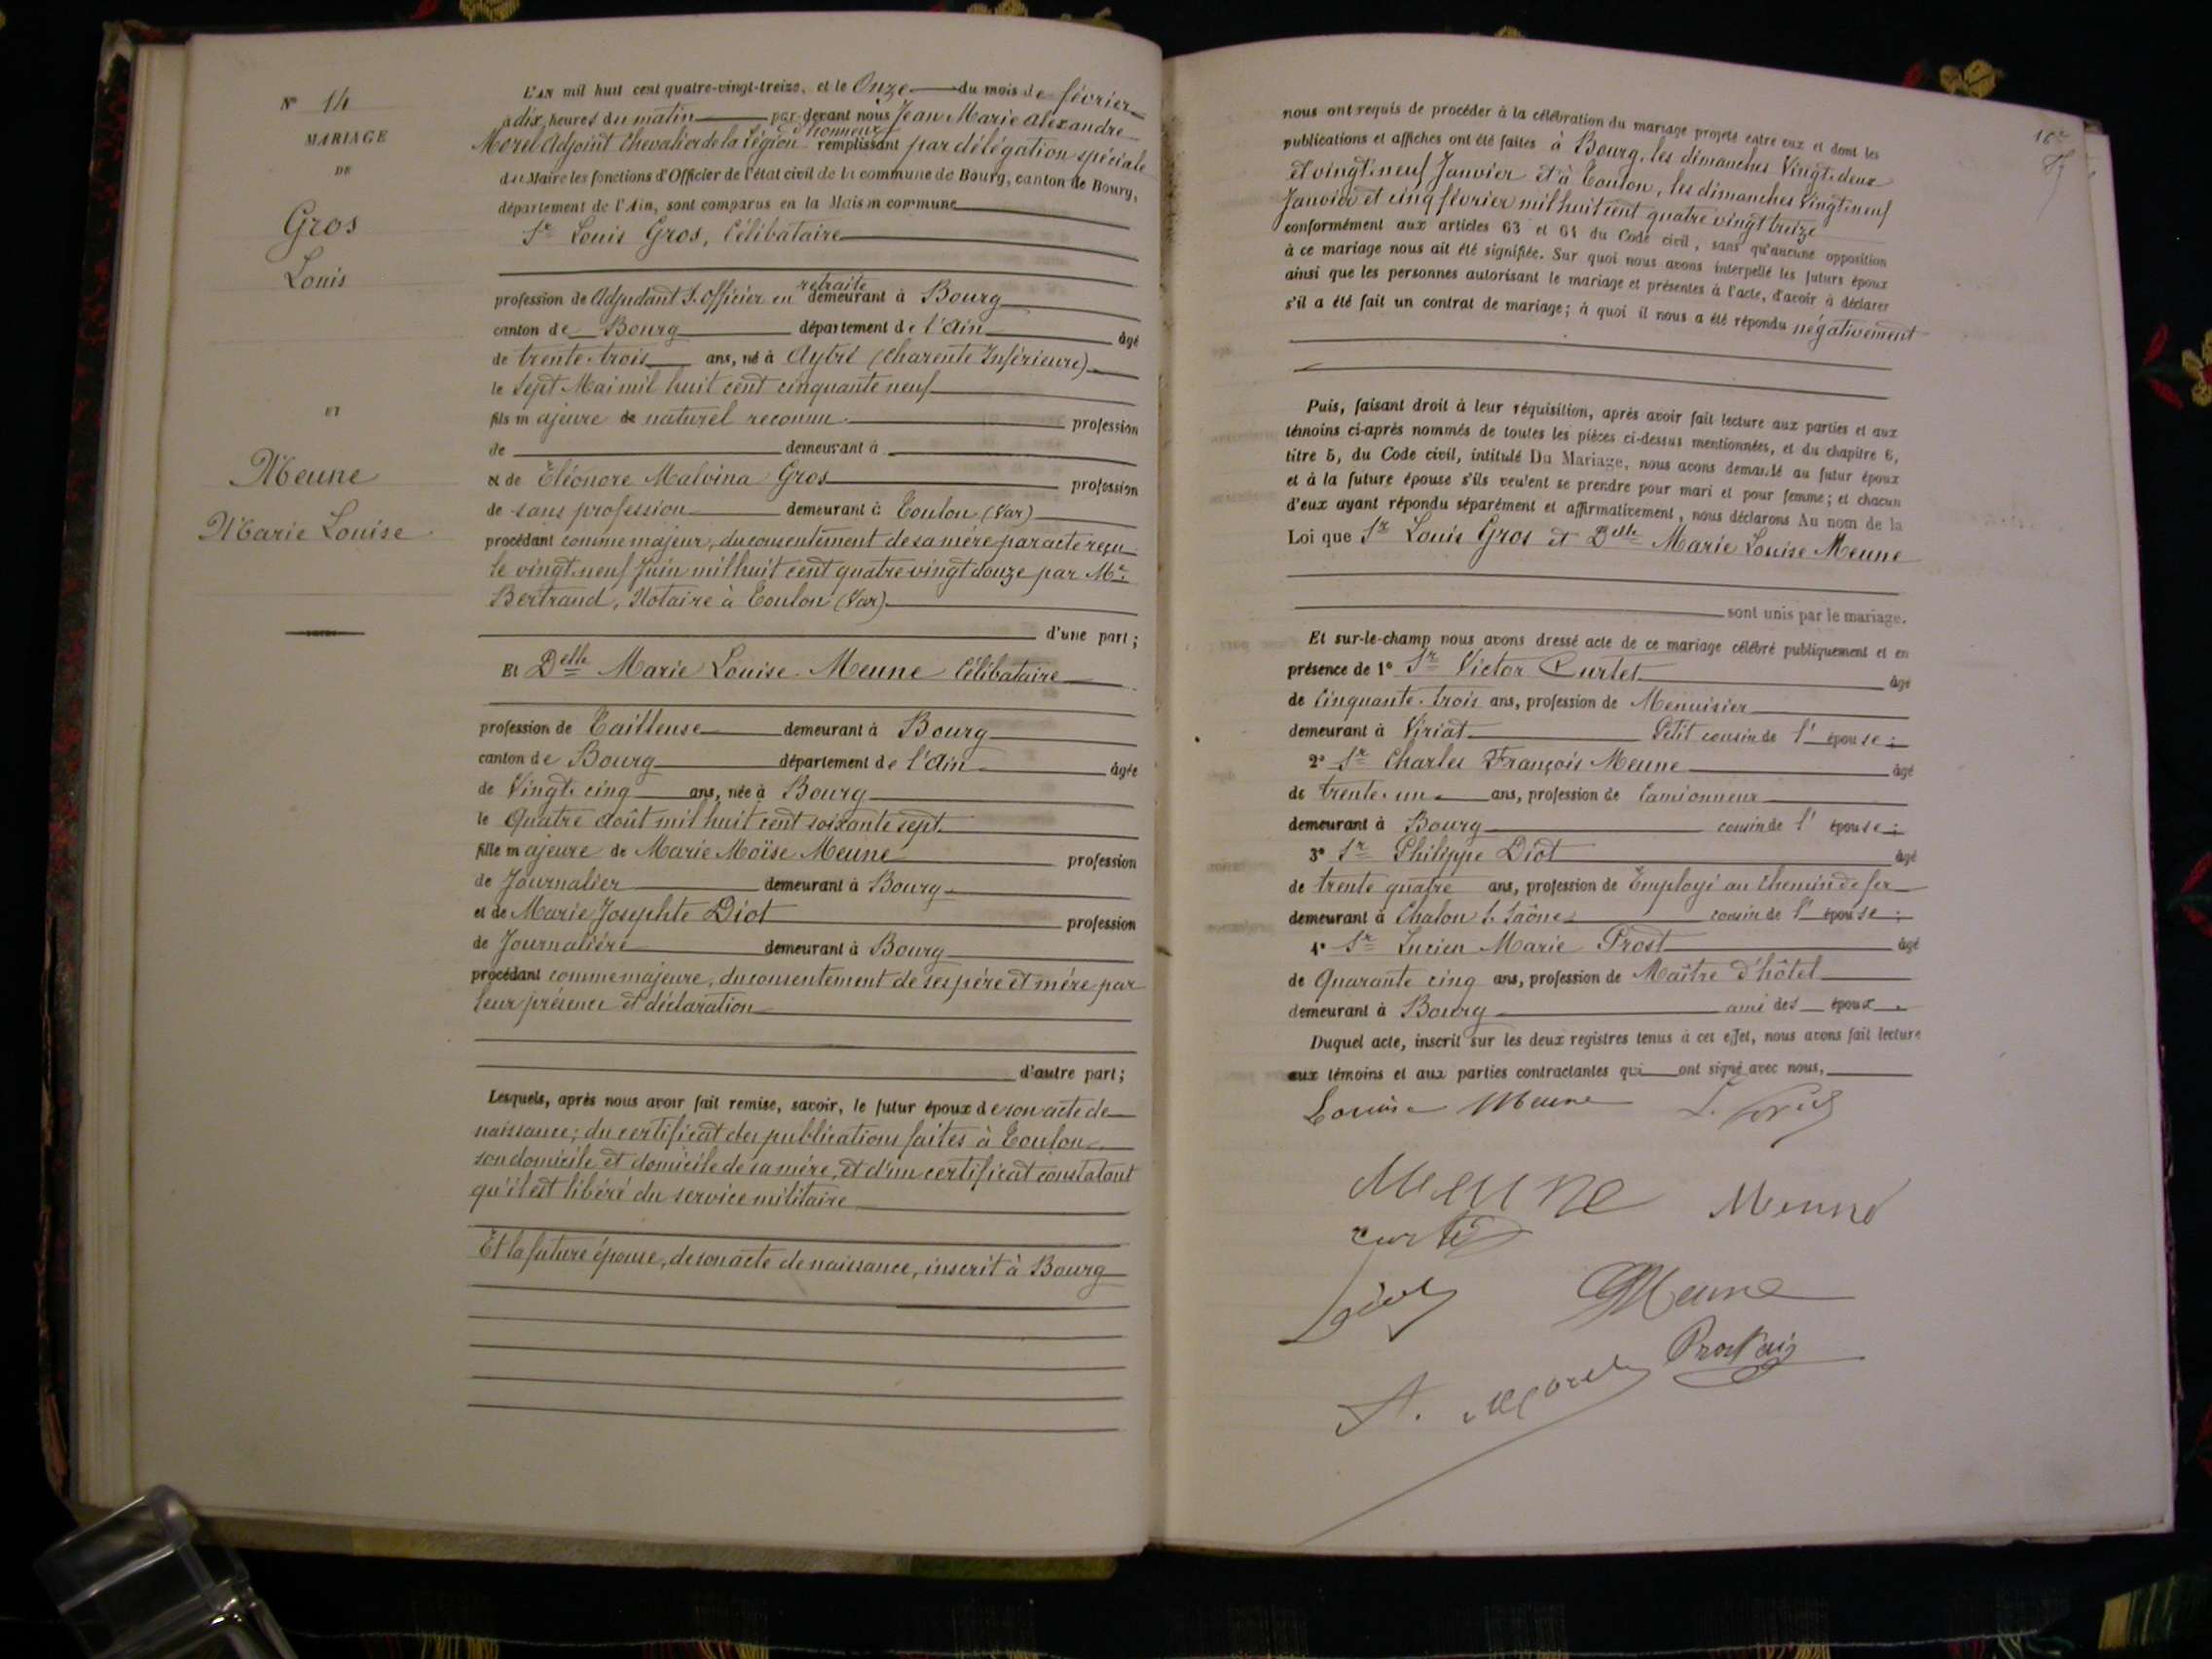 N° 14
MARIAGE
DE
Gros
Louis
ET
Meune
Marie Louise
L'AN mil huit cent quatre-vingt-treize, et le Onze du mois de février
à dix heures du matin par devant nous Jean Marie Alexandre
Morel Adjoint Chevalier de la Légion d'honneur remplissant par délégation spéciale
du Maire les fonctions d'Officier de l'état civil de la commune de Bourg, canton de Bourg,
département de l'Ain, sont comparus en la Maison commune
Sr Louis Gros, Célibataire
profession de Adjudant S. Officier en retraite demeurant à Bourg
canton de Bourg département de l'Ain âgé
de trente-trois ans, né à Aytré (Charente Inférieure)
le sept Mai mil huit cent cinquante neuf
fils majeure de naturel reconnu profession
de demeurant à
et de Éléonore Malvina Gros profession
de sans profession demeurant à Toulon (Var)
procédant comme majeur, du consentement de sa mère par acte reçu
le vingt-neuf Juin mil huit cent quatre vingt douze par Me
Bertrand, Notaire à Toulon (Var)
d'une part;
Et Delle Marie Louise Meune Célibataire
profession de Tailleuse demeurant à Bourg
canton de Bourg département de l'Ain âgée
de Vingt-cinq ans, née à Bourg
le Quatre Août mil huit cent soixante sept
fille majeure de Marie Moïse Meune profession
de Journalier demeurant à Bourg
et de Marie Josephte Diot profession
de Journalière demeurant à Bourg
procédant comme majeure, du consentement de ses père et mère par
leur présence et déclaration
d'autre part;
Lesquels, après nous avoir fait remise, savoir, le futur époux de son acte de
naissance; du certificat des publications faites à Toulon
son domicile et domicile de sa mère, et d'un certificat constatant
qu'il est libéré du service militaire
Et la future épouse, de son acte de naissance, inscrit à Bourg
nous ont requis de procéder à la célébration du mariage projeté entre eux et dont les
publications et affiches ont été faites à Bourg, les dimanches Vingt-deux
et vingt-neuf Janvier et à Toulon, les dimanches Vingt-neuf
Janvier et cinq février mil huit cent quatre vingt treize
conformément aux articles 63 et 64 du Code civil, sans qu'aucune opposition
à ce mariage nous ait été signifiée. Sur quoi nous avons interpellé les futurs époux
ainsi que les personnes autorisant le mariage et présentes à l'acte, d'avoir à déclarer
s'il a été fait un contrat de mariage; à quoi il nous a été répondu négativement
Puis, faisant droit à leur réquisition, après avoir fait lecture aux parties et aux
témoins ci-après nommés de toutes les pièces ci-dessus mentionnées, et du chapitre 6,
titre 5, du Code civil, intitulé Du Mariage, nous avons demandé au futur époux
et à la future épouse s'ils veulent se prendre pour mari et pour femme; et chacun
d'eux ayant répondu séparément et affirmativement, nous déclarons Au nom de la
Loi que Sr Louis Gros et Delle Marie Louise Meune
sont unis par le mariage.
Et sur-le-champ nous avons dressé acte de ce mariage célébré publiquement et en
présence de 1° Sr Victor Curtet âgé
de Cinquante-trois ans, profession de Menuisier
demeurant à Viriat Petit cousin de l'épouse;
2° Sr Charles François Meune âgé
de trente-un ans, profession de Camionneur
demeurant à Bourg cousin de l'épouse;
3° Sr Philippe Diot âgé
de trente quatre ans, profession de Employé au Chemin de fer
demeurant à Chalon S. Saône cousin de l'épouse;
4° Sr Lucien Marie Prost âgé
de Quarante cinq ans, profession de Maître d'hôtel
demeurant à Bourg ami des époux.
Duquel acte, inscrit sur les deux registres tenus à cet effet, nous avons fait lecture
aux témoins et aux parties contractantes qui ont signé avec nous,
Louise Meune L. Gros
Meune Meune
Curtet
Diot Meune
A. Morel